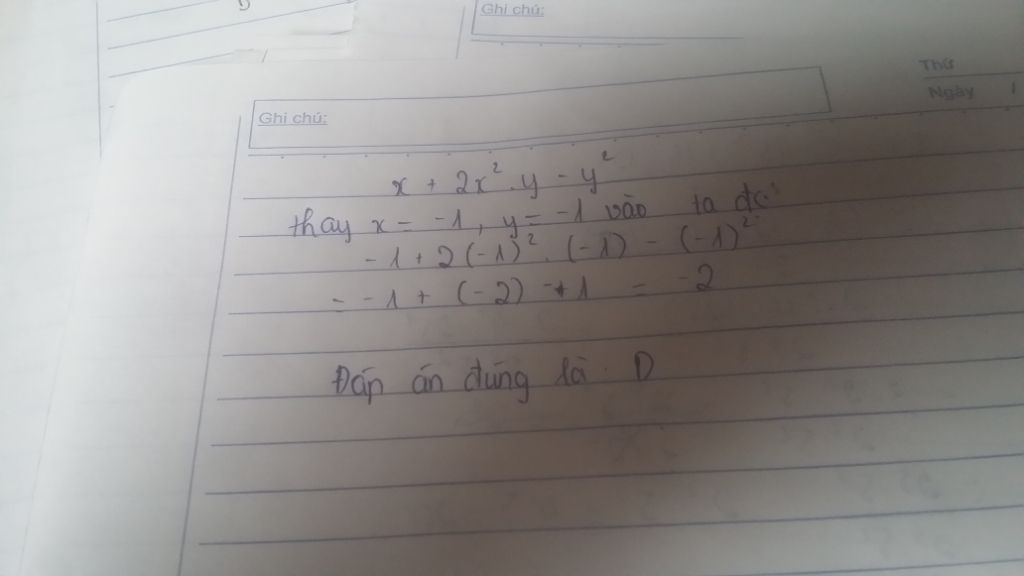 D
Ghi chú:
Thứ
Ngày /
Ghi chú:
x + 2x².y - y²
thay x = -1, y = -1 vào ta đc:
-1 + 2(-1)².(-1) - (-1)²
= -1 + (-2) - 1 = -2
Đáp án đúng là D